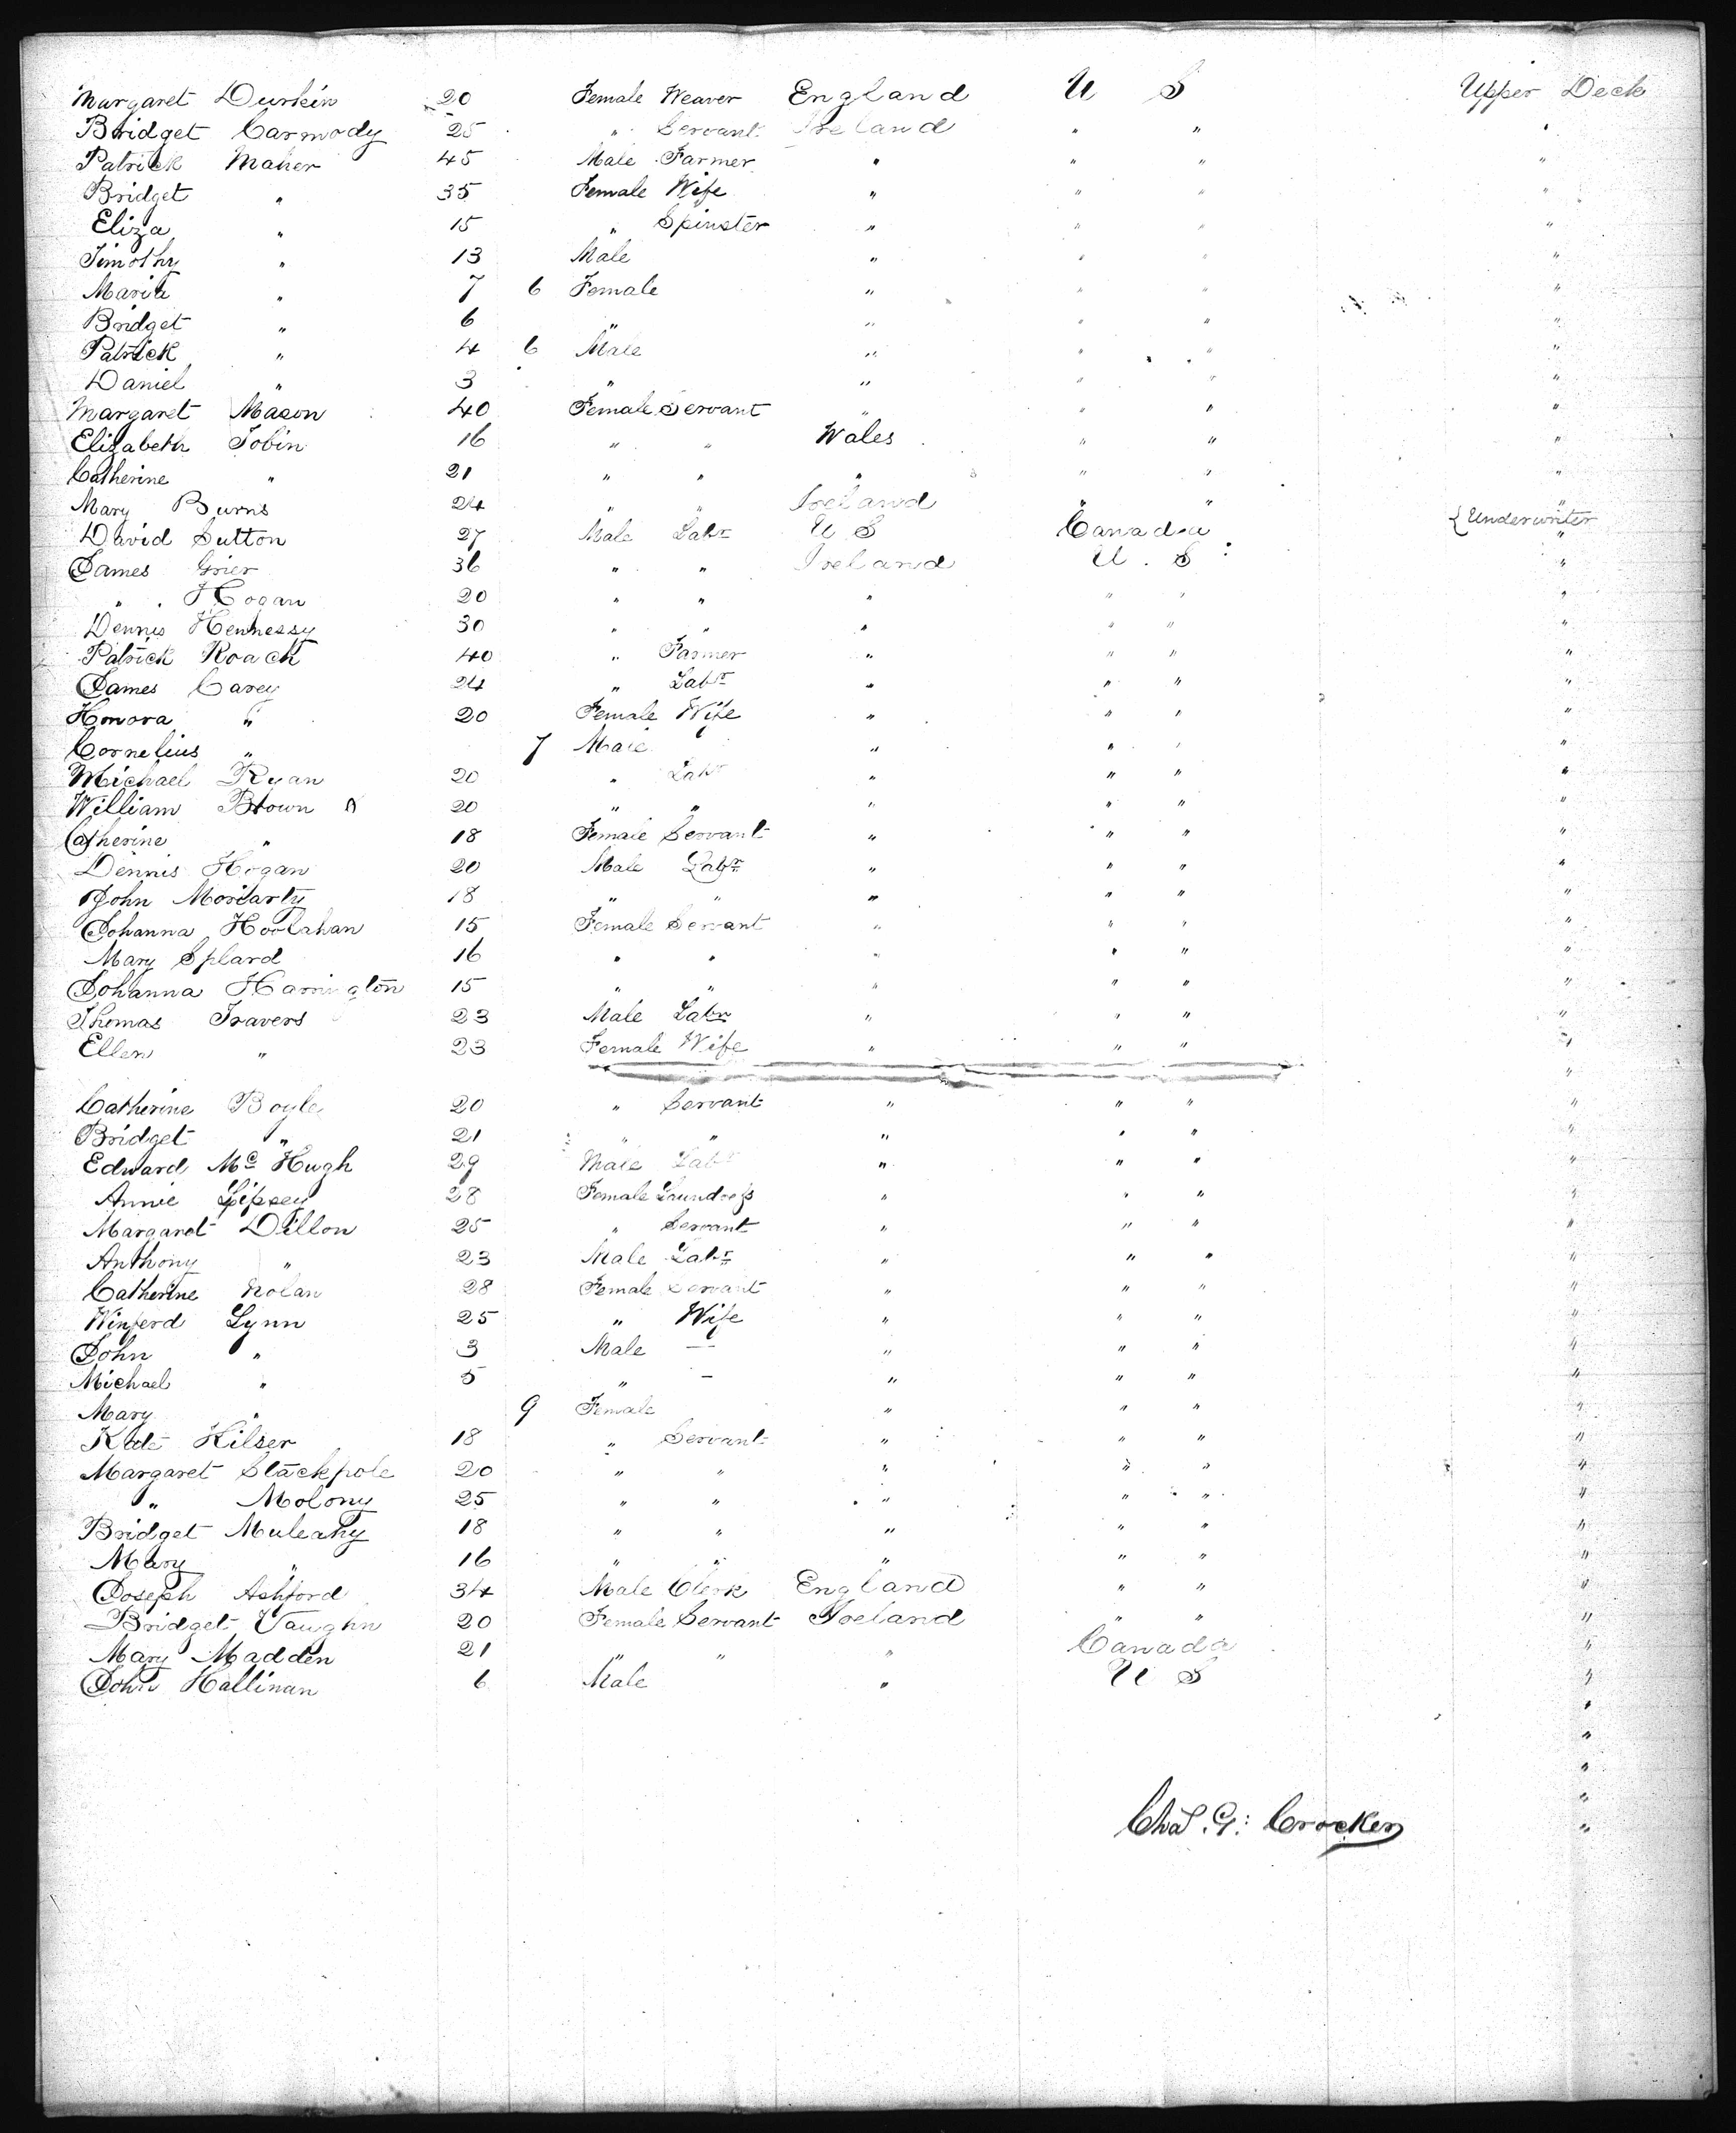 Margaret Durkin 20 Female Weaver England U S Upper Deck
Bridget Carmody 25 " Servant Ireland " " "
Patrick Maher 45 Male Farmer " " " "
Bridget " 35 Female Wife " " " "
Eliza " 15 " Spinster " " " "
Timothy " 13 Male " " " "
Maria " 7 6 Female " " " "
Bridget " 6 " " " " "
Patrick " 4 6 Male " " " "
Daniel " 3 " " " " "
Margaret Mason 40 Female Servant " " " "
Elizabeth Tobin 16 " " Wales " " "
Catherine " 21 " " " " " "
Mary Burns 24 " " Ireland " " "
David Sutton 27 Male Labr U S Canada { Underwriter "
James Grier 36 " " Ireland U. S "
" Hogan 20 " " " " " "
Dennis Hennessy 30 " " " " " "
Patrick Roach 40 " Farmer " " " "
James Carey 24 " Labr " " " "
Honora " 20 Female Wife " " " "
Cornelius " 7 Male " " " "
Michael Ryan 20 " Labr " " " "
William Brown 20 " " " " " "
Catherine " 18 Female Servant " " " "
Dennis Hogan 20 Male Labr " " " "
John Moriarty 18 " " " " " "
Johanna Hoolahan 15 Female Servant " " " "
Mary Splard 16 " " " " " "
Johanna Harrington 15 " " " " " "
Thomas Travers 23 Male Labr " " " "
Ellen " 23 Female Wife " " " "
"
Catherine Boyle 20 " Servant " " " "
Bridget " 21 " " " " " "
Edward Mc Hugh 29 Male Labr " " " "
Annie Gipsey 28 Female Laundress " " " "
Margaret Dillon 25 " Servant " " " "
Anthony " 23 Male Labr " " " "
Catherine Nolan 28 Female Servant " " " "
Winferd Lynn 25 " Wife " " " "
John " 3 Male — " " " "
Michael " 5 " - " " " "
Mary " 9 Female " " " "
Kate Hilser 18 " Servant " " " "
Margaret Stackpole 20 " " " " " "
" Molony 25 " " " " " "
Bridget Muleahy 18 " " " " " "
Mary " 16 " " " " " "
Joseph Ashford 34 Male Clerk England " " "
Bridget Vaughn 20 Female Servant Ireland " " "
Mary Madden 21 " " " Canada "
John Hallinan 6 Male " U S "
"
"
"
"
Chas. G: Crocker "